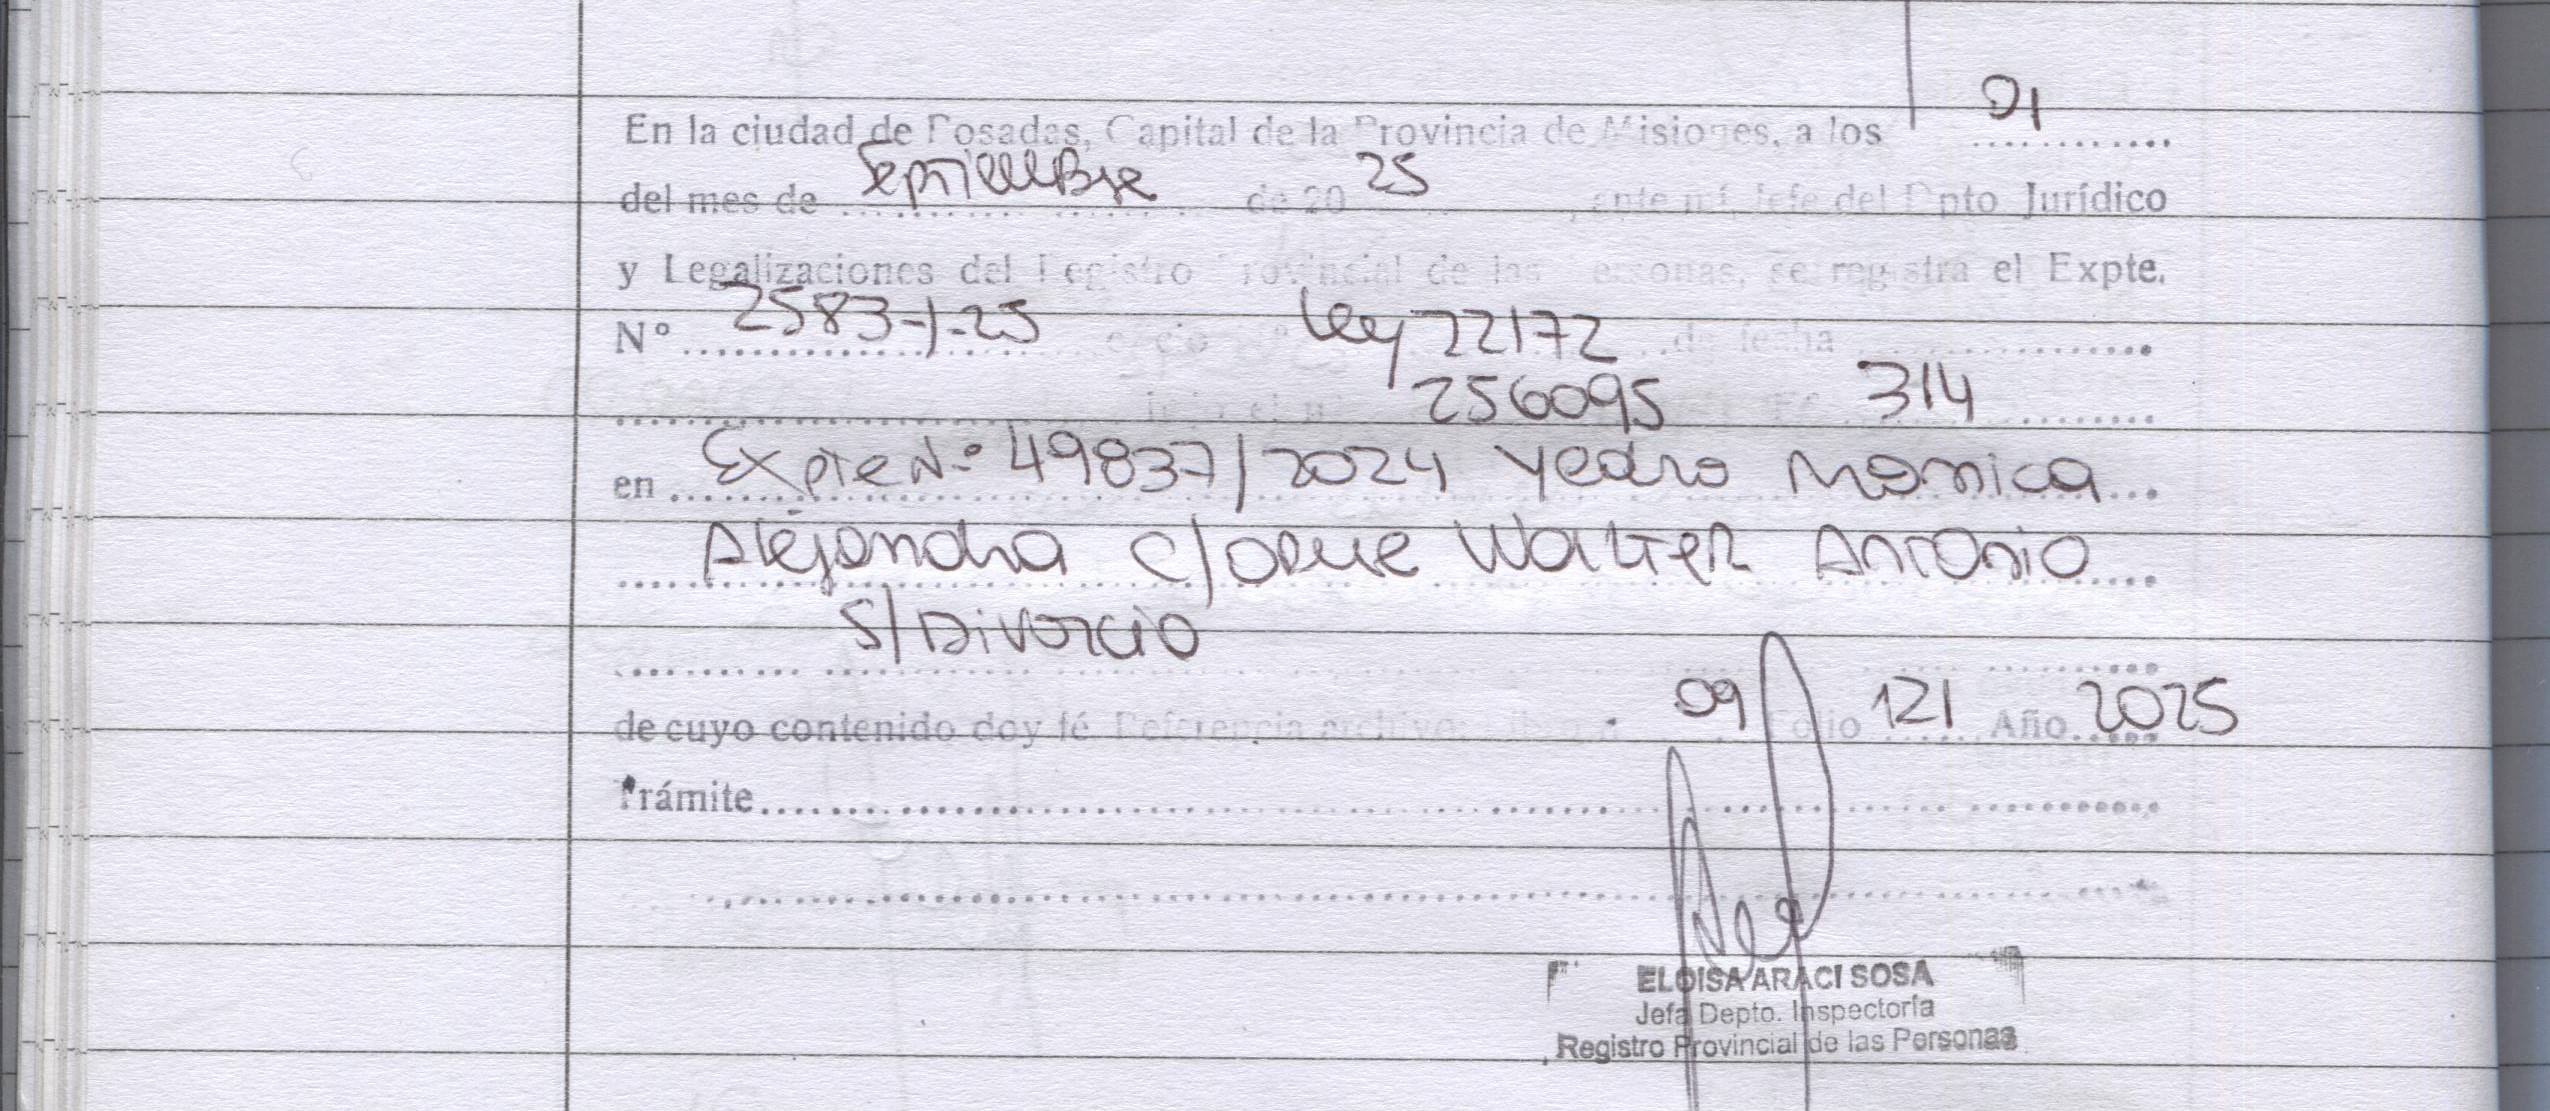 01
En la ciudad de Posadas, Capital de la Provincia de Misiones, a los ............
del mes de ... Septiembre de 20 25, ante mí, Jefe del Dpto Jurídico
y Legalizaciones del Registro Provincial de las Personas, se registra el Expte.
Nº 2583-J-25 oficio Ley 22172 de fecha
256095 314
en Expte Nº 49837/2024 Yedro Monica
Alejandra c/ Walter Antonio
S/Divorcio
de cuyo contenido doy fé Referencia archivo: 09 Folio 121 Año 2025
Trámite
ELOISA ARACI SOSA
Jefa Depto. Inspectoría
Registro Provincial de las Personas